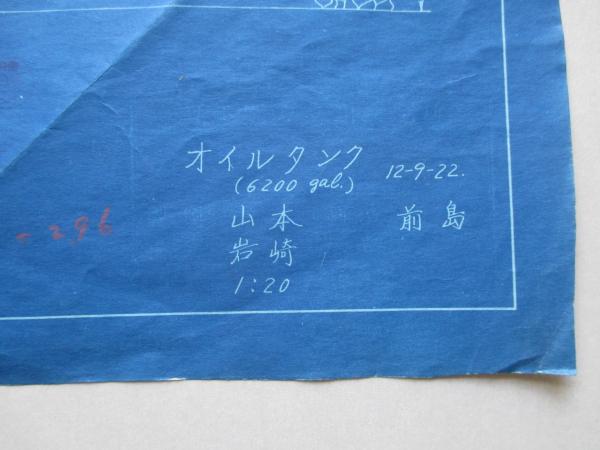 オイルタンク 12-9-22.
(6200 gal.)
山本 前島
岩崎
1:20
- 296